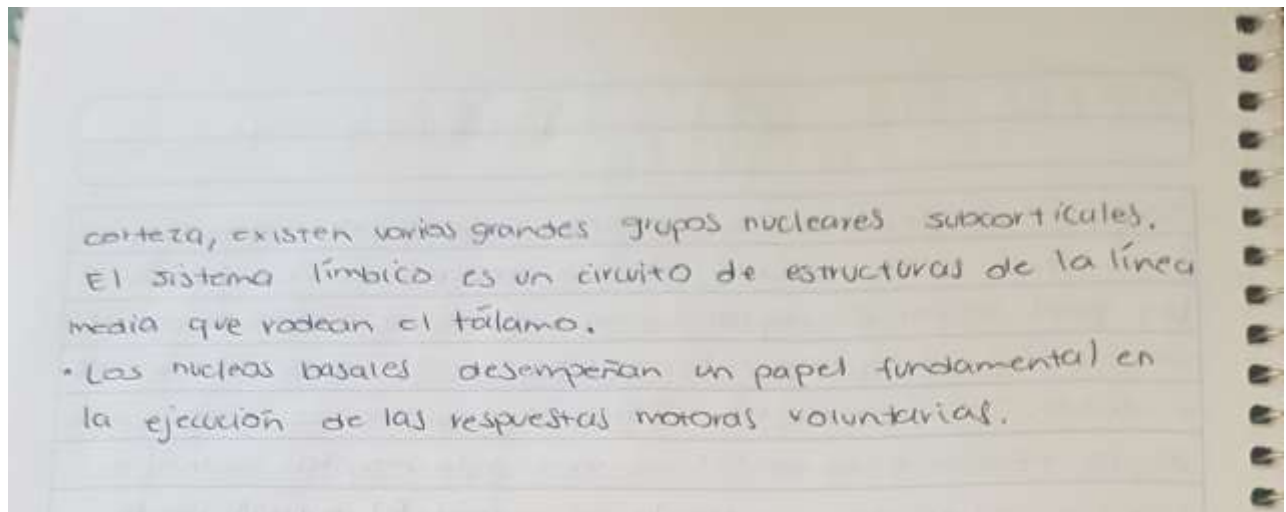 corteza, existen varios grandes grupos nucleares subcorticales.
El sistema límbico es un circuito de estructuras de la línea
media que rodean el tálamo.
• Los nucleos basales desempeñan un papel fundamental en
la ejecución de las respuestas motoras voluntarias.